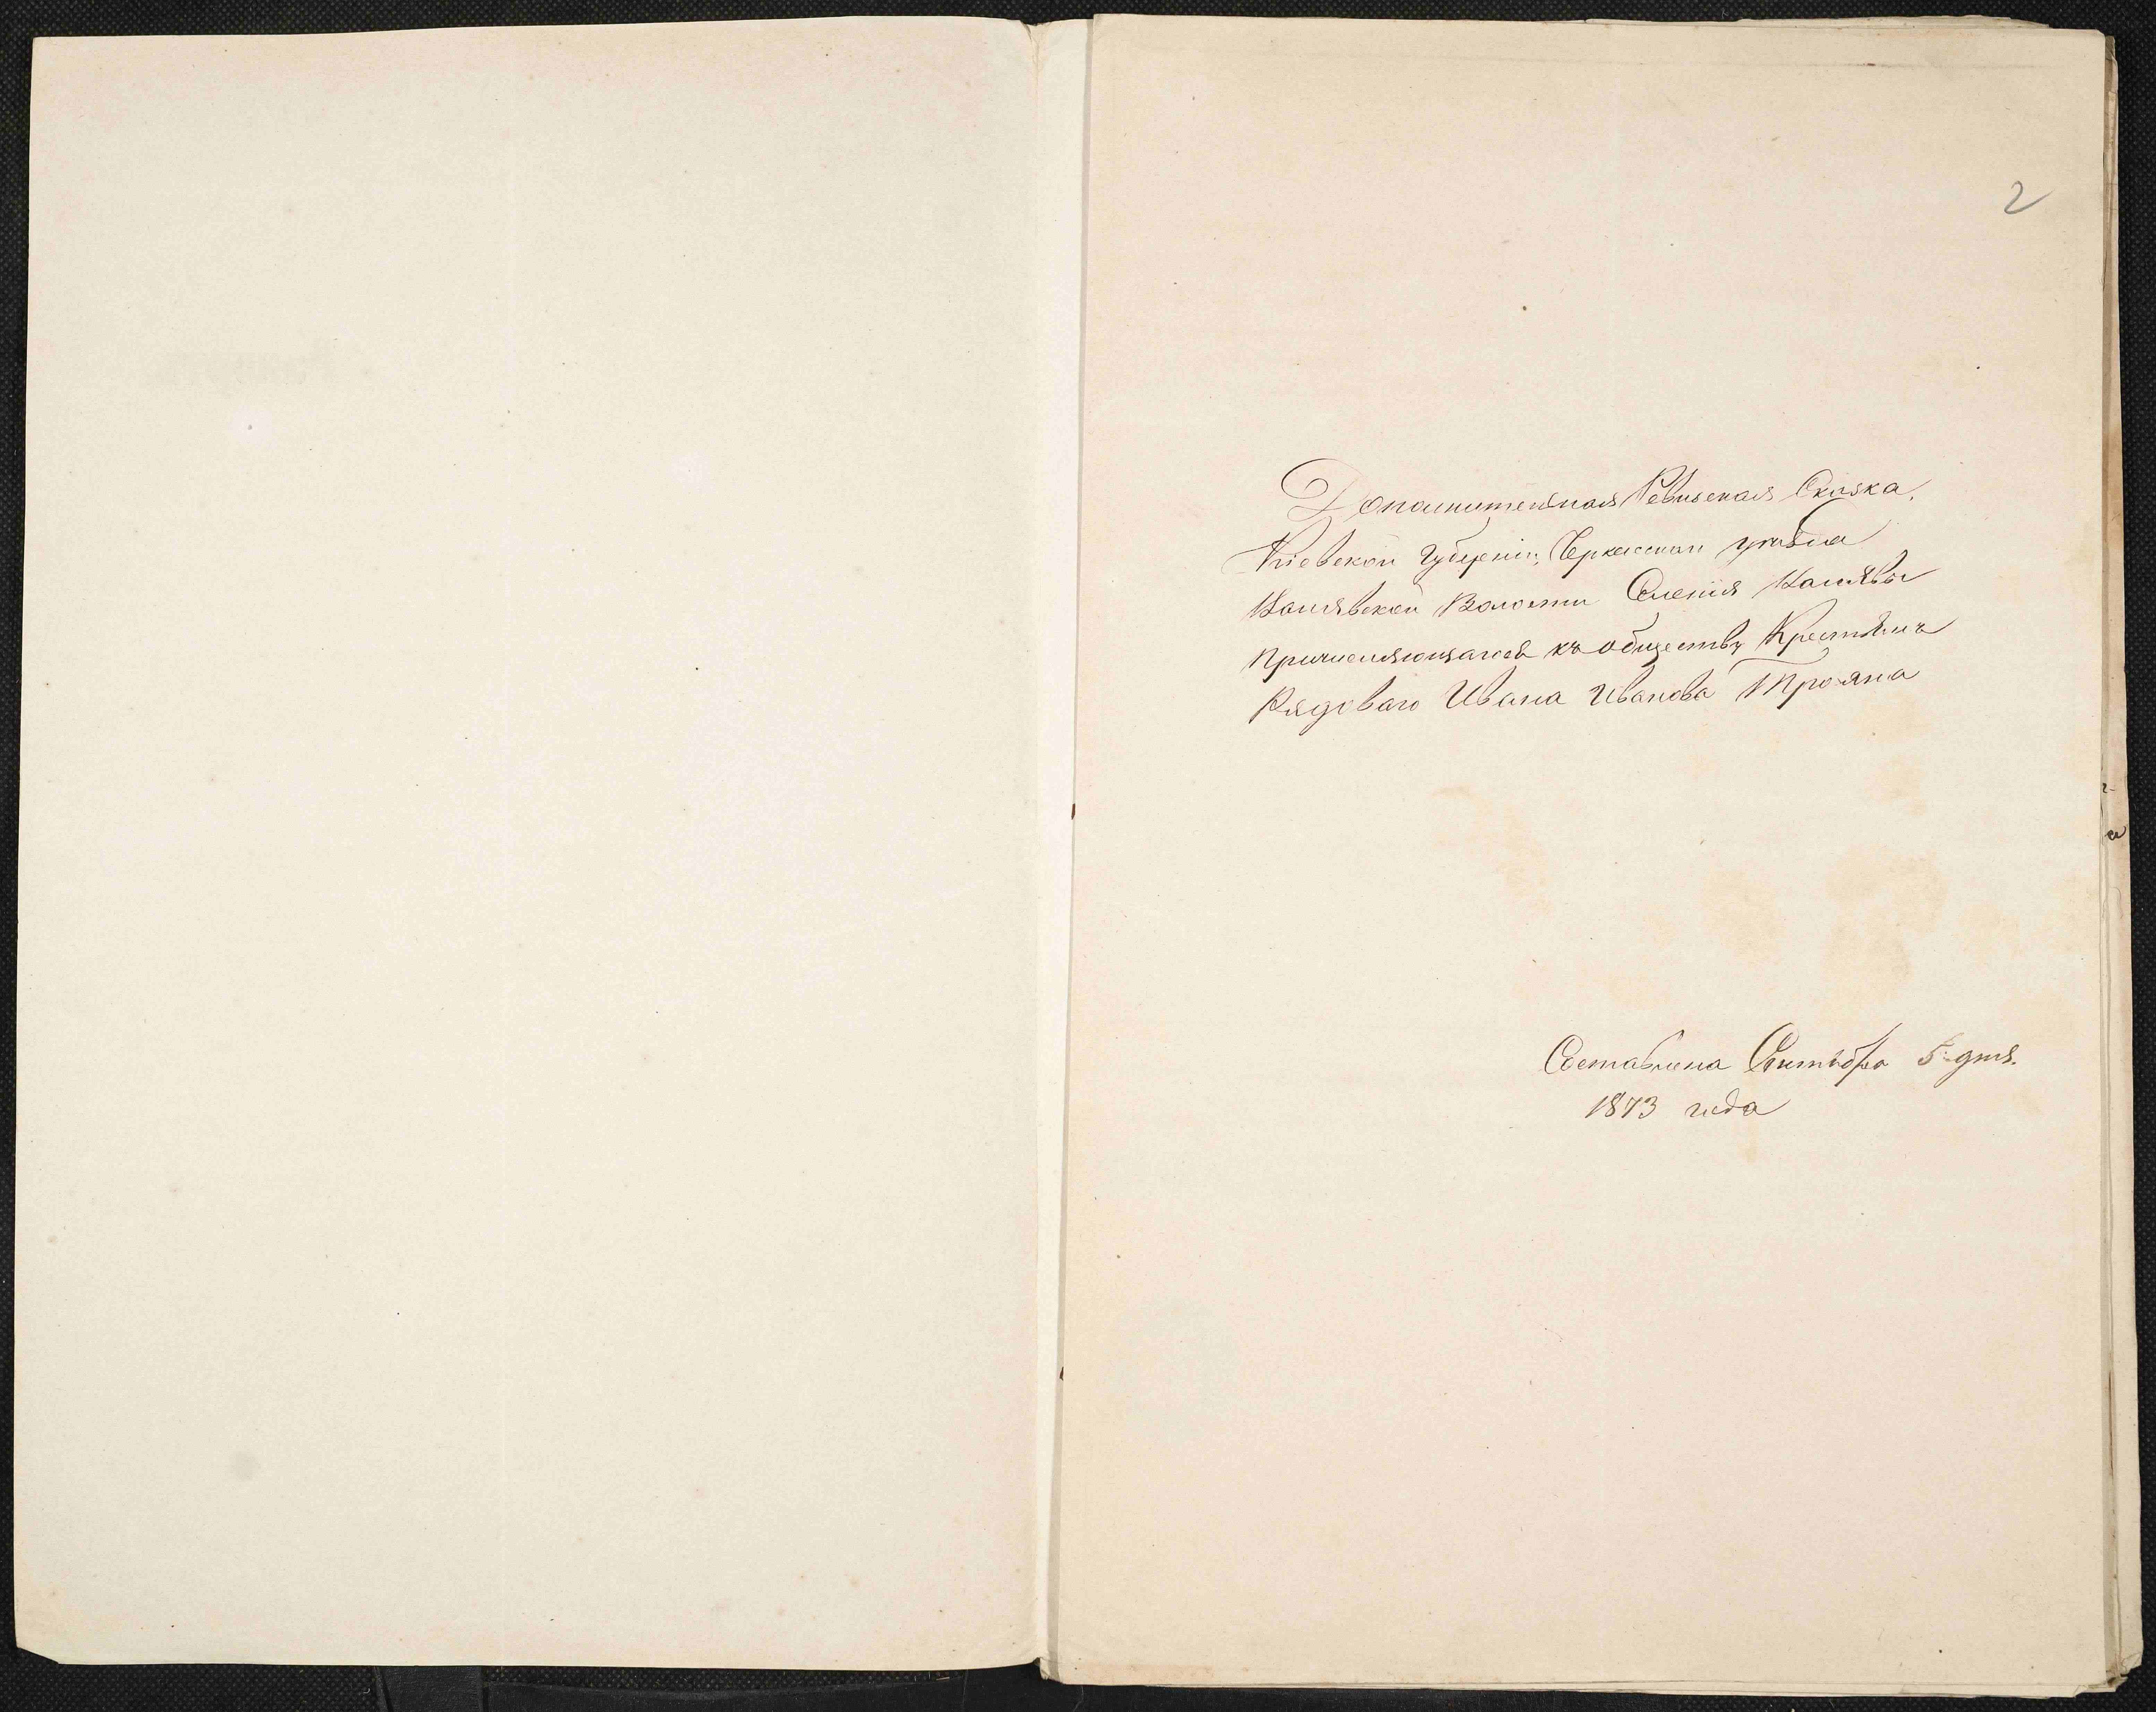 2
Дополнительная Ревизская Сказка.
Кіевской Губерніи, Черкасскаго уѣзда
Волости Селенія
причисляющагося къ обществу Крестьянъ
Рядоваго Ивана Иванова Трояна
Составлена Сентября 5 дня.
1873 года